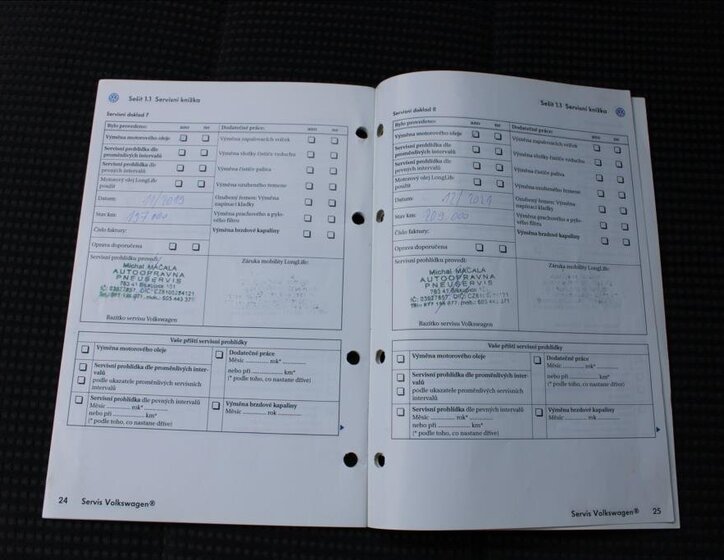 Sešit 1.1 Servisní knížka
Servisní doklad 7
Bylo provedeno: ano ne
Výměna motorového oleje
Servisní prohlídka dle
proměnlivých intervalů
Servisní prohlídka dle
pevných intervalů
Motorový olej LongLife
použit
Datum: 11/2019
Stav km: 197.000
Číslo faktury:
Oprava doporučena
Dodatečné práce: ano ne
Výměna zapalovacích svíček
Výměna vložky čističe vzduchu
Výměna čističe paliva
Výměna ozubeného řemene
Ozubený řemen: Výměna
napínací kladky
Výměna prachového a pylo-
vého filtru
Výměna brzdové kapaliny
Servisní prohlídku provedl:
Michal MÁČALA
AUTOOPRAVNA
PNEUSERVIS
783 41 Biskupice 101
Razítko servisu Volkswagen
Záruka mobility LongLife:
Vaše příští servisní prohlídky
Výměna motorového oleje
Servisní prohlídka dle proměnlivých inter-
valů
podle ukazatele proměnlivých servisních
intervalů
Servisní prohlídka dle pevných intervalů
Měsíc ............... rok*...............
nebo při ............... km*
(* podle toho, co nastane dříve)
Dodatečné práce
Měsíc ............... rok*...............
nebo při ............... km*
(* podle toho, co nastane dříve)
Výměna brzdové kapaliny
Měsíc ............... rok ...............
24 Servis Volkswagen®
Sešit 1.1 Servisní knížka
Servisní doklad 8
Bylo provedeno: ano ne
Výměna motorového oleje
Servisní prohlídka dle
proměnlivých intervalů
Servisní prohlídka dle
pevných intervalů
Motorový olej LongLife
použit
Datum: 12/2021
Stav km: 209.000
Číslo faktury:
Oprava doporučena
Dodatečné práce: ano ne
Výměna zapalovacích svíček
Výměna vložky čističe vzduchu
Výměna čističe paliva
Výměna ozubeného řemene
Ozubený řemen: Výměna
napínací kladky
Výměna prachového a pylo-
vého filtru
Výměna brzdové kapaliny
Servisní prohlídku provedl:
Michal MÁČALA
AUTOOPRAVNA
PNEUSERVIS
783 41 Biskupice 101
Razítko servisu Volkswagen
Záruka mobility LongLife:
Vaše příští servisní prohlídky
Výměna motorového oleje
Servisní prohlídka dle proměnlivých inter-
valů
podle ukazatele proměnlivých servisních
intervalů
Servisní prohlídka dle pevných intervalů
Měsíc ............... rok*...............
nebo při ............... km*
(* podle toho, co nastane dříve)
Dodatečné práce
Měsíc ............... rok*...............
nebo při ............... km*
(* podle toho, co nastane dříve)
Výměna brzdové kapaliny
Měsíc ............... rok ...............
Servis Volkswagen® 25